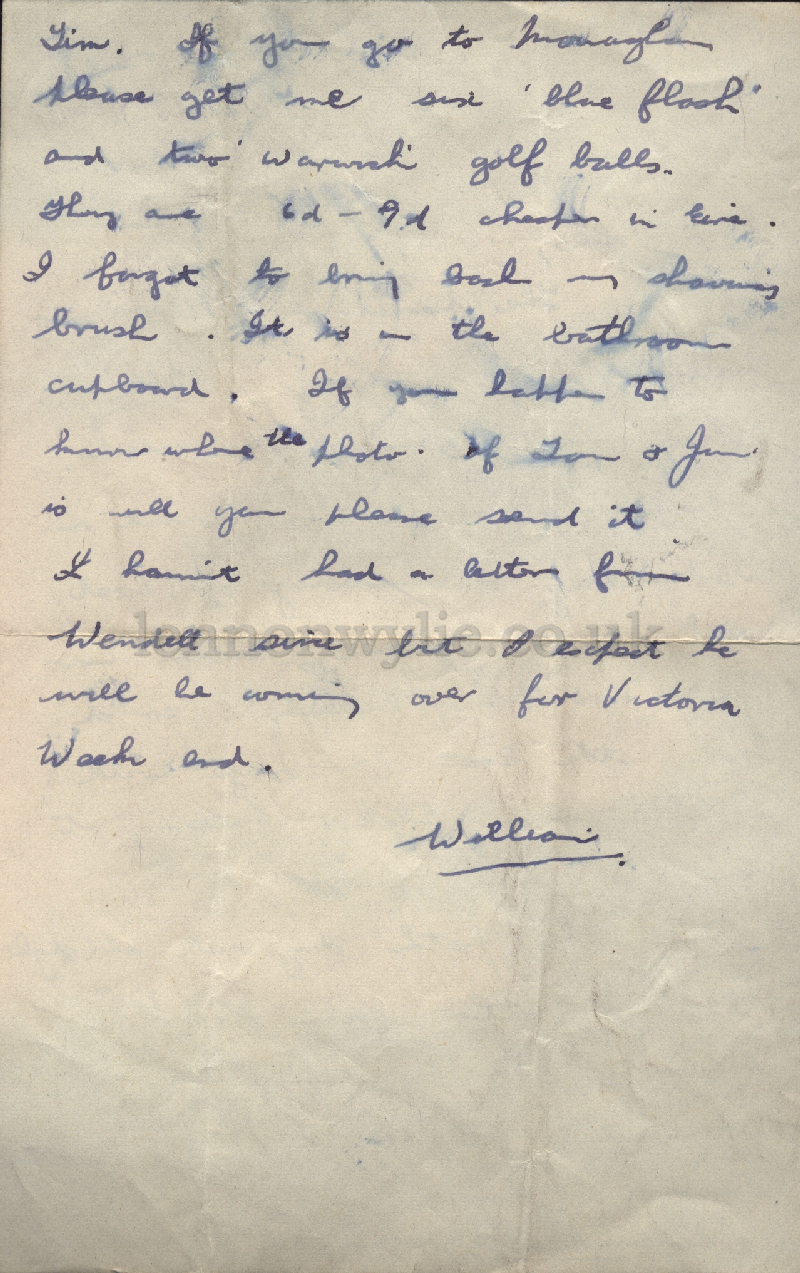 Tim. If you go to Monaghan
please get me six 'blue flash'
and two 'warwick' golf balls.
They are 6d – 9d cheaper in Eire.
I forgot to bring back my shaving
brush. It is in the bathroom
cupboard. If you happen to
know where the photo. of Tom & Jim
is will you please send it
I havnit had a letter from
Wendell since but I expect he
will be coming over for Victoria
Week end.
William.
lennonwylie.co.uk